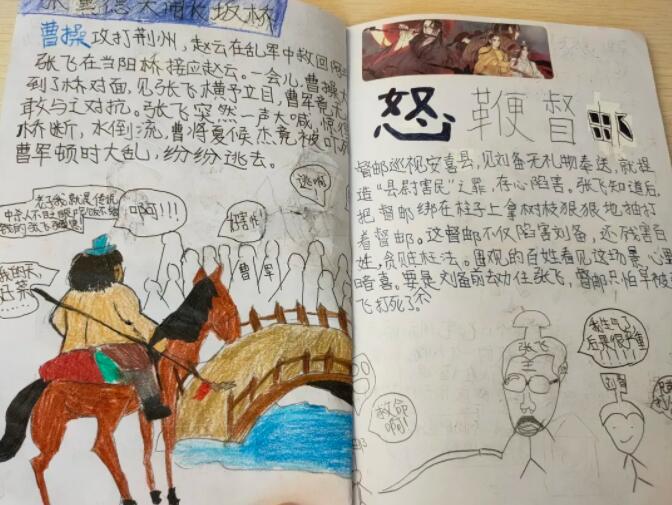 张翼德大闹长坂桥
曹操攻打荆州，赵云在乱军中救回
张飞在当阳桥接应赵云。一会儿，曹操
到了桥对面，见张飞横予立目，曹军竟无
敢与之对抗。张飞突然一声大喊，惊
桥断，水倒流，曹将夏侯杰竟被吓
曹军顿时大乱，纷纷逃去。
啊啊!!!
好害怕
逃啊
曹军
我的天，
怒鞭督邮
督邮巡视安喜县，见刘备无礼物奉送，就捏
造“县尉害民”之罪，存心陷害。张飞知道后
把督邮绑在柱子上拿树枝狠狠地抽打
着督邮。这督邮不仅陷害刘备，还残害百
姓，贪赃枉法。围观的百姓看见这场景，心里
暗喜。要是刘备前去劝住张飞，督邮只怕早被
飞打死了。
张飞
我生气了
后果很严重
救命
啊!